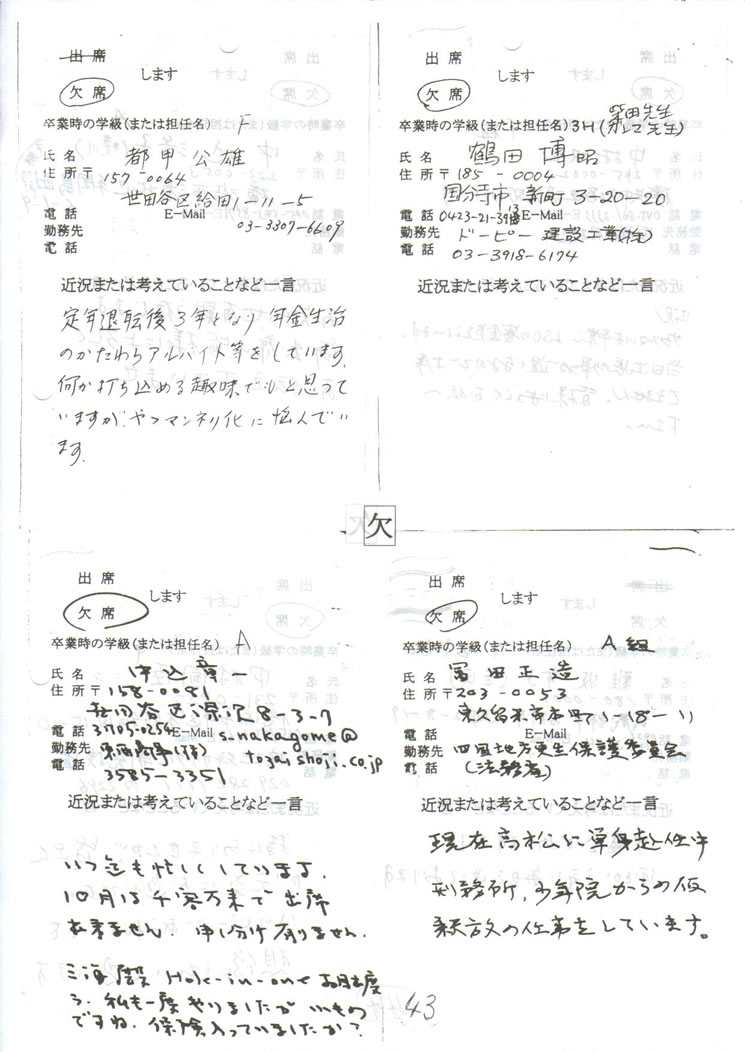 出席
欠席
します
卒業時の学級(または担任名) F
氏名 都甲公雄
住所〒157-0064
世田谷区給田1-11-5
電話 E-Mail
03-3307-6609
勤務先
電話
近況または考えていることなど一言
定年退転後3年となり年金生治
のかたわらアルバイト等をしています。
何か打ち込める趣味でもと思って
いますが、ややマンネリ化に悩んでい
ます。
出席
欠席
します
卒業時の学級(または担任名)3H(柴田先生
ガレマ先生)
氏名 鶴田博昭
住所〒185-0004
国分寺市新町3-20-20
電話 0423-21-3913 E-Mail
勤務先 ドーピー建設工業(株)
電話 03-3918-6174
近況または考えていることなど一言
欠
出席
欠席
します
卒業時の学級(または担任名) A
氏名 中込章一
住所〒158-0081
世田谷区深沢8-3-7
電話 3705-0254 E-Mail s-nakagome@
tozaishoji.co.jp
勤務先 東西商事(株)
電話 3585-3351
近況または考えていることなど一言
いつ迄も忙しくしています。
10月は千客万来で出席
出来ません。申し分け有りません。
Hole-in-one お目出度
う。私も一度やりましたが いいもの
ですね。保険入っていましたか?
出席
欠席
します
卒業時の学級(または担任名) A組
氏名 冨田正造
住所〒203-0053
東久留米市本町1-18-1)
電話 E-Mail
勤務先 四国地方更生保護委員会
電話 (法務省)
近況または考えていることなど一言
現在高松に単身赴任中
刑務所、少年院からの仮
釈放の仕事をしています。
43